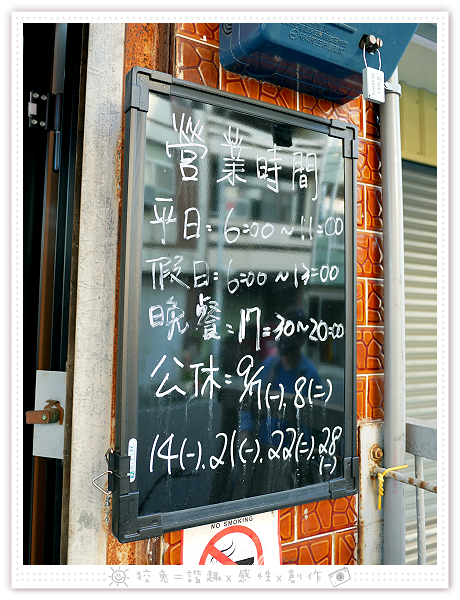 營業時間
平日:6:00~11:00
假日:6:00~13:00
晚餐:17:30~20:00
公休:9/1(一),8(二)
14(一).21(一).22(二).28(一)
NO SMOKING
狡兔=諧趣x感性x創作